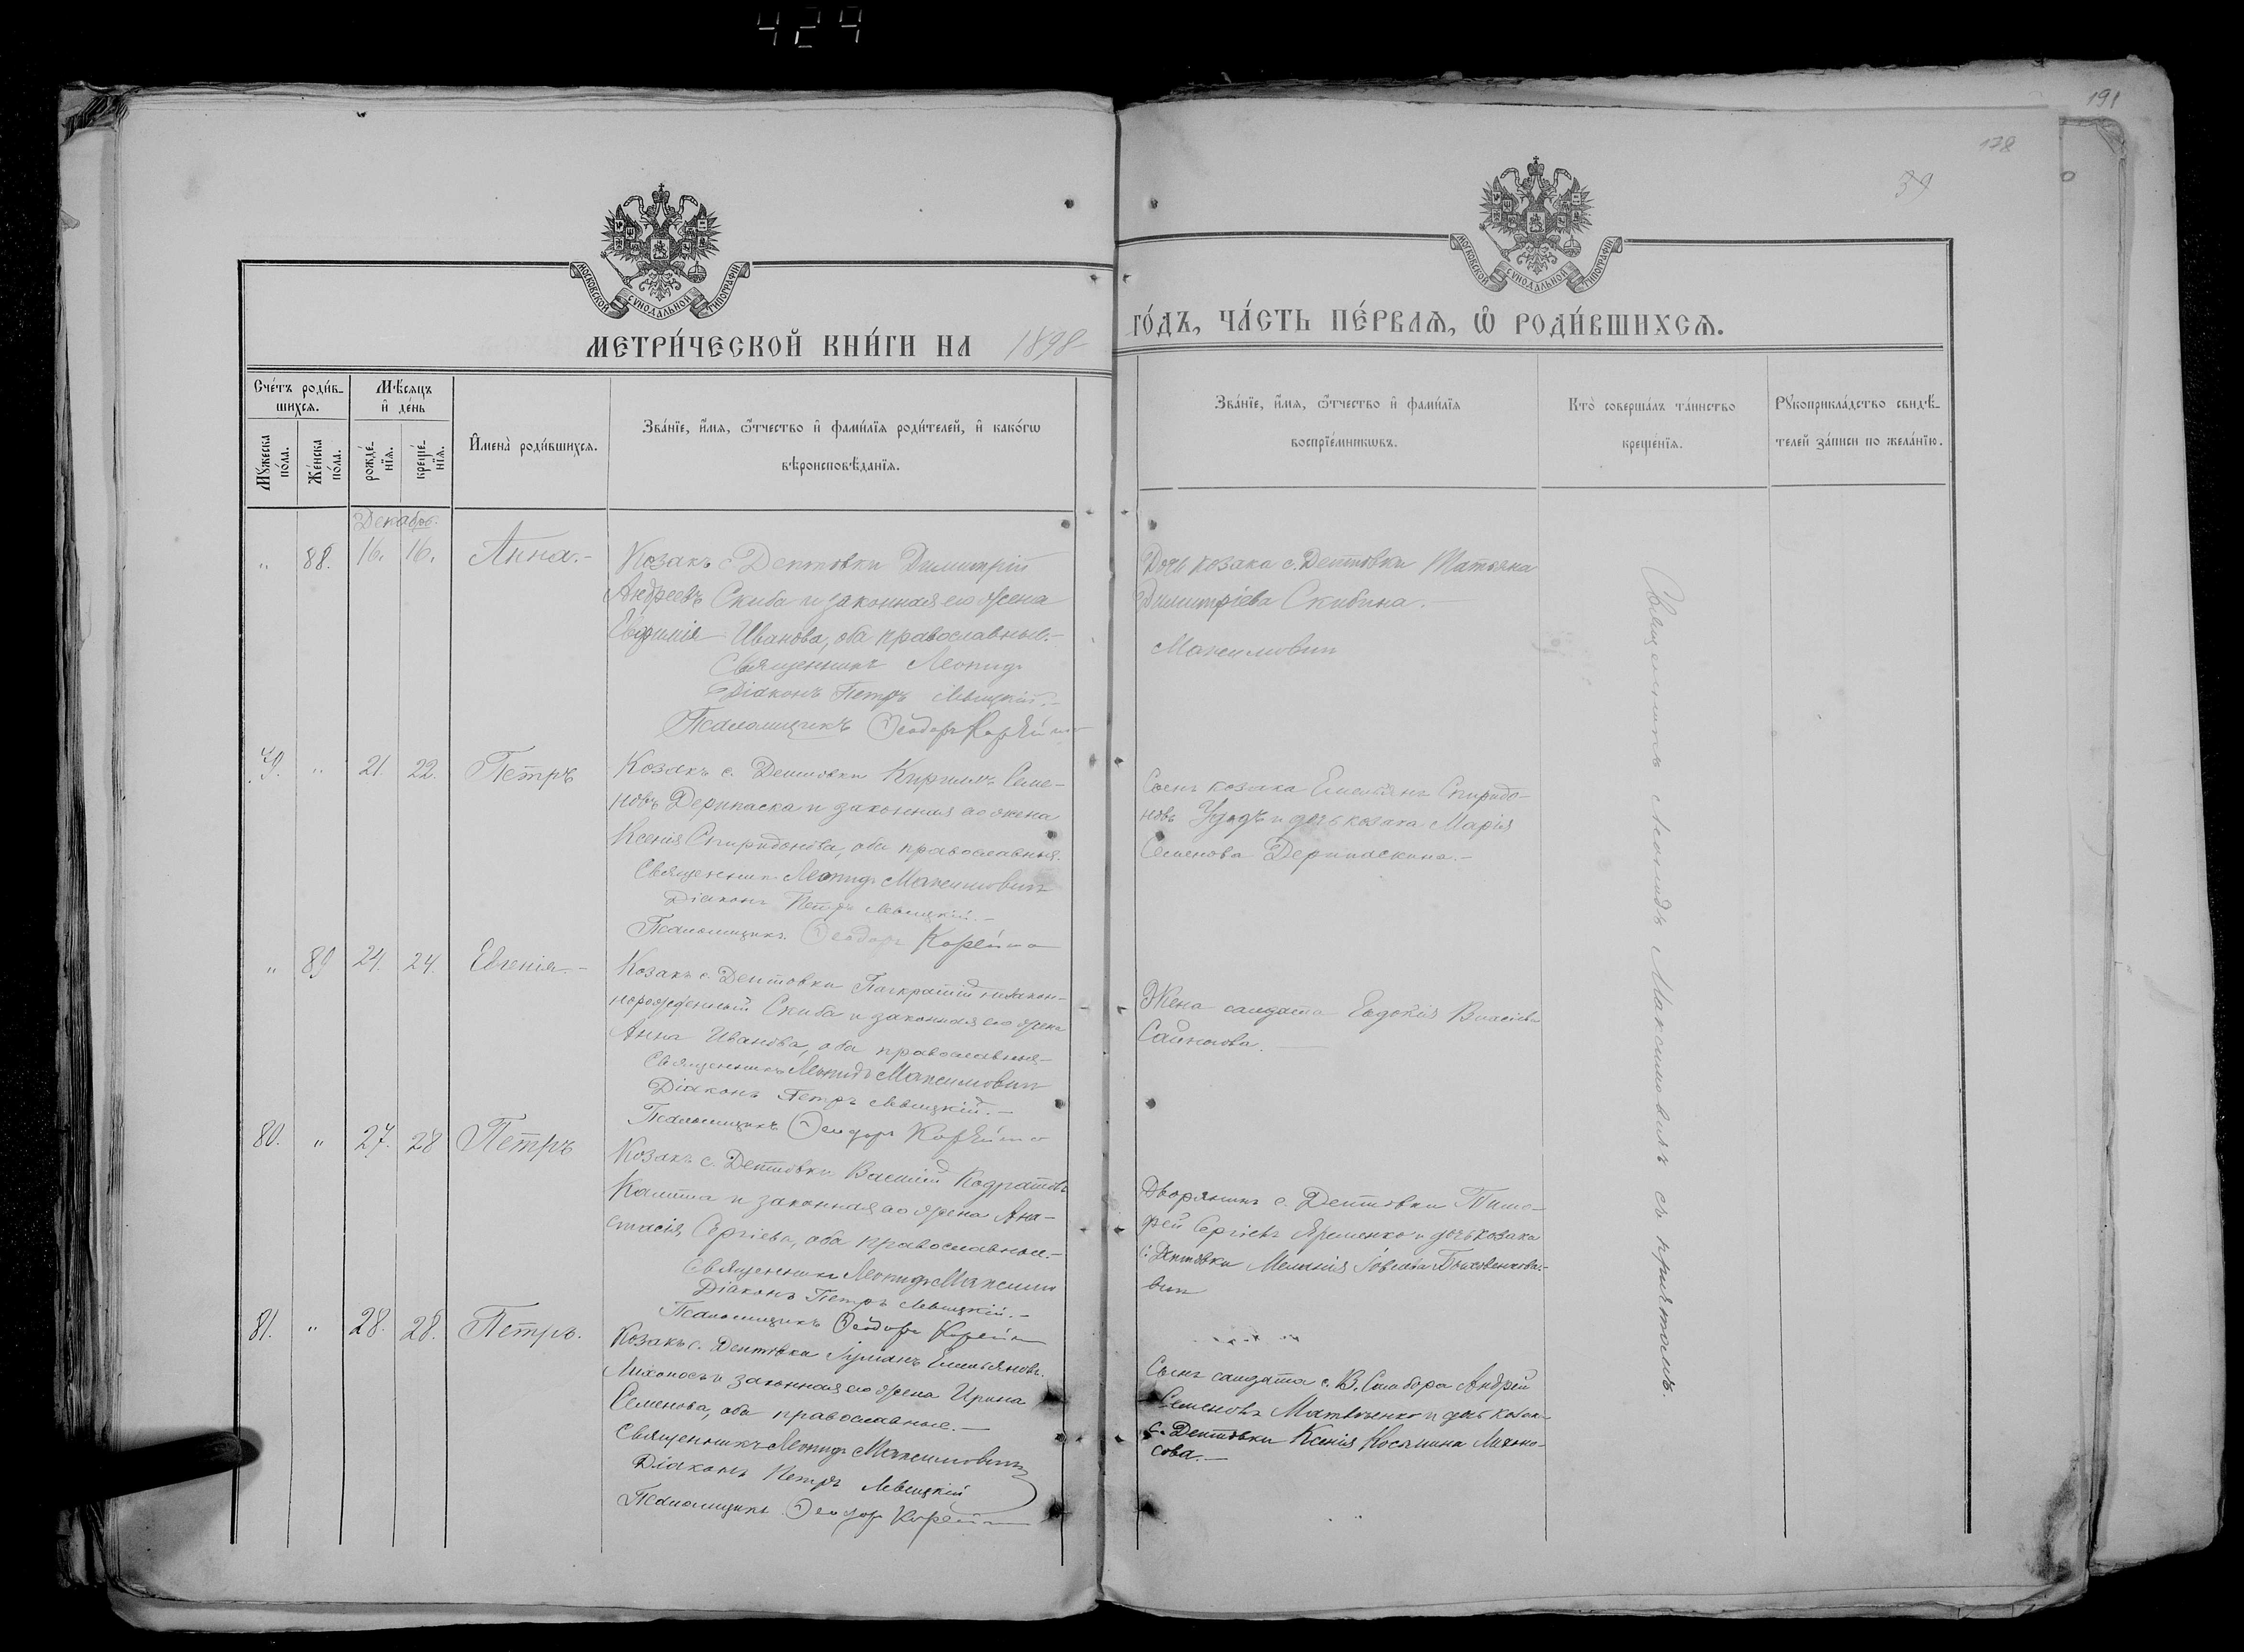 424
191
178
39
МОСКОВСКОЙ СѴНОДАЛЬНОЙ ТИПОГРАФІИ
МОСКОВСКОЙ СѴНОДАЛЬНОЙ ТИПОГРАФІИ
МЕТРИ́ЧЕСКОЙ КНИ́ГИ НА 1898 ГО́ДЪ, ЧА́СТЬ ПЕ́РВАѦ, Ѽ РОДИ́ВШИХСѦ.
Сче́тъ роди́в-
шихсѧ.
Мꙋжеска по́ла.
Же́нска по́ла.
Мѣ́сѧцъ
и҆ де́нь
рожде́-
нїѧ.
креще́-
нїѧ.
И҆мена̀ роди́вшихсѧ.
Зва́нїе, и҆́мѧ, ѻ҆́тчество и҆ фами́лїѧ роди́телей, и҆ како́гѡ
вѣроисповѣ́данїѧ.
Зва́нїе, и҆́мѧ, ѻ҆́тчество и҆ фами́лїѧ
воспрїе́мникѡвъ.
Кто̀ соверша́лъ та́инство
креще́нїѧ.
Рꙋкоприкла́дство свидѣ́-
телей за́писи по жела́нїю.
Декабрь.
" 88. 16. 16. Анна.-
Козакъ с. Дептовки Димитрій
Андреевъ Скиба и законная его жена
Евфимія Иванова, оба православные.-
Священникъ Леонидъ
Діаконъ Петръ Левицкій.-
Псаломщикъ Ѳеодоръ
Дочь козака с. Дептовки Татьяна
Димитріева Скибина.-
Максимовичъ
79. " 21. 22. Петръ
Козакъ с. Дептовки Кириллъ Семе-
новъ Дерипаска и законная его жена
Ксенія Спиридонова, оба православныя.
Священникъ Леонидъ Максимовичъ
Діаконъ Петръ Левицкій.-
Псаломщикъ Ѳеодоръ
Сынъ козака Емельянъ Спиридо-
новъ Удодъ и дочь козака Марія
Семенова Дерипаскина.-
" 89 24. 24. Евгенія.-
Козакъ с. Дептовки Панкратій незакон-
норожденный Скиба и законная его жена
Анна Иванова, оба православныя-
Священникъ Леонидъ Максимовичъ
Діаконъ Петръ Левицкій.-
Псаломщикъ Ѳеодоръ
Жена солдата Евдокія Власіева
80. " 27. 28 Петръ
Козакъ с. Дептовки Василій Кодратовъ
Калита и законная его жена Ана-
стасія Сергіева, оба православные.-
Священникъ Леонидъ Максимо
Діаконъ Петръ Левицкій.-
Псаломщикъ Ѳеодоръ
Дворянинъ с. Дептовки Тимо-
фей Сергіевъ Яременко и дочь козака
с. Дептовки Меланія Іовлева
вичъ
81. " 28. 28. Петръ.
Козакъ с. Дептовки Іуліанъ Емельяновъ
Лихоносъ и законная его жена Ирина
Семенова, оба православные.-
Священникъ Леонидъ Максимовичъ
Діаконъ Петръ Левицкій
Псаломщикъ Ѳеодоръ
Сынъ солдата с. В. Самбора Андрей
Семеновъ Матвіенко и дочь козака
с. Дептовки Ксенія Косьмина Лихоно-
сова.-
Священникъ Леонидъ Максимовичъ съ причтомъ.